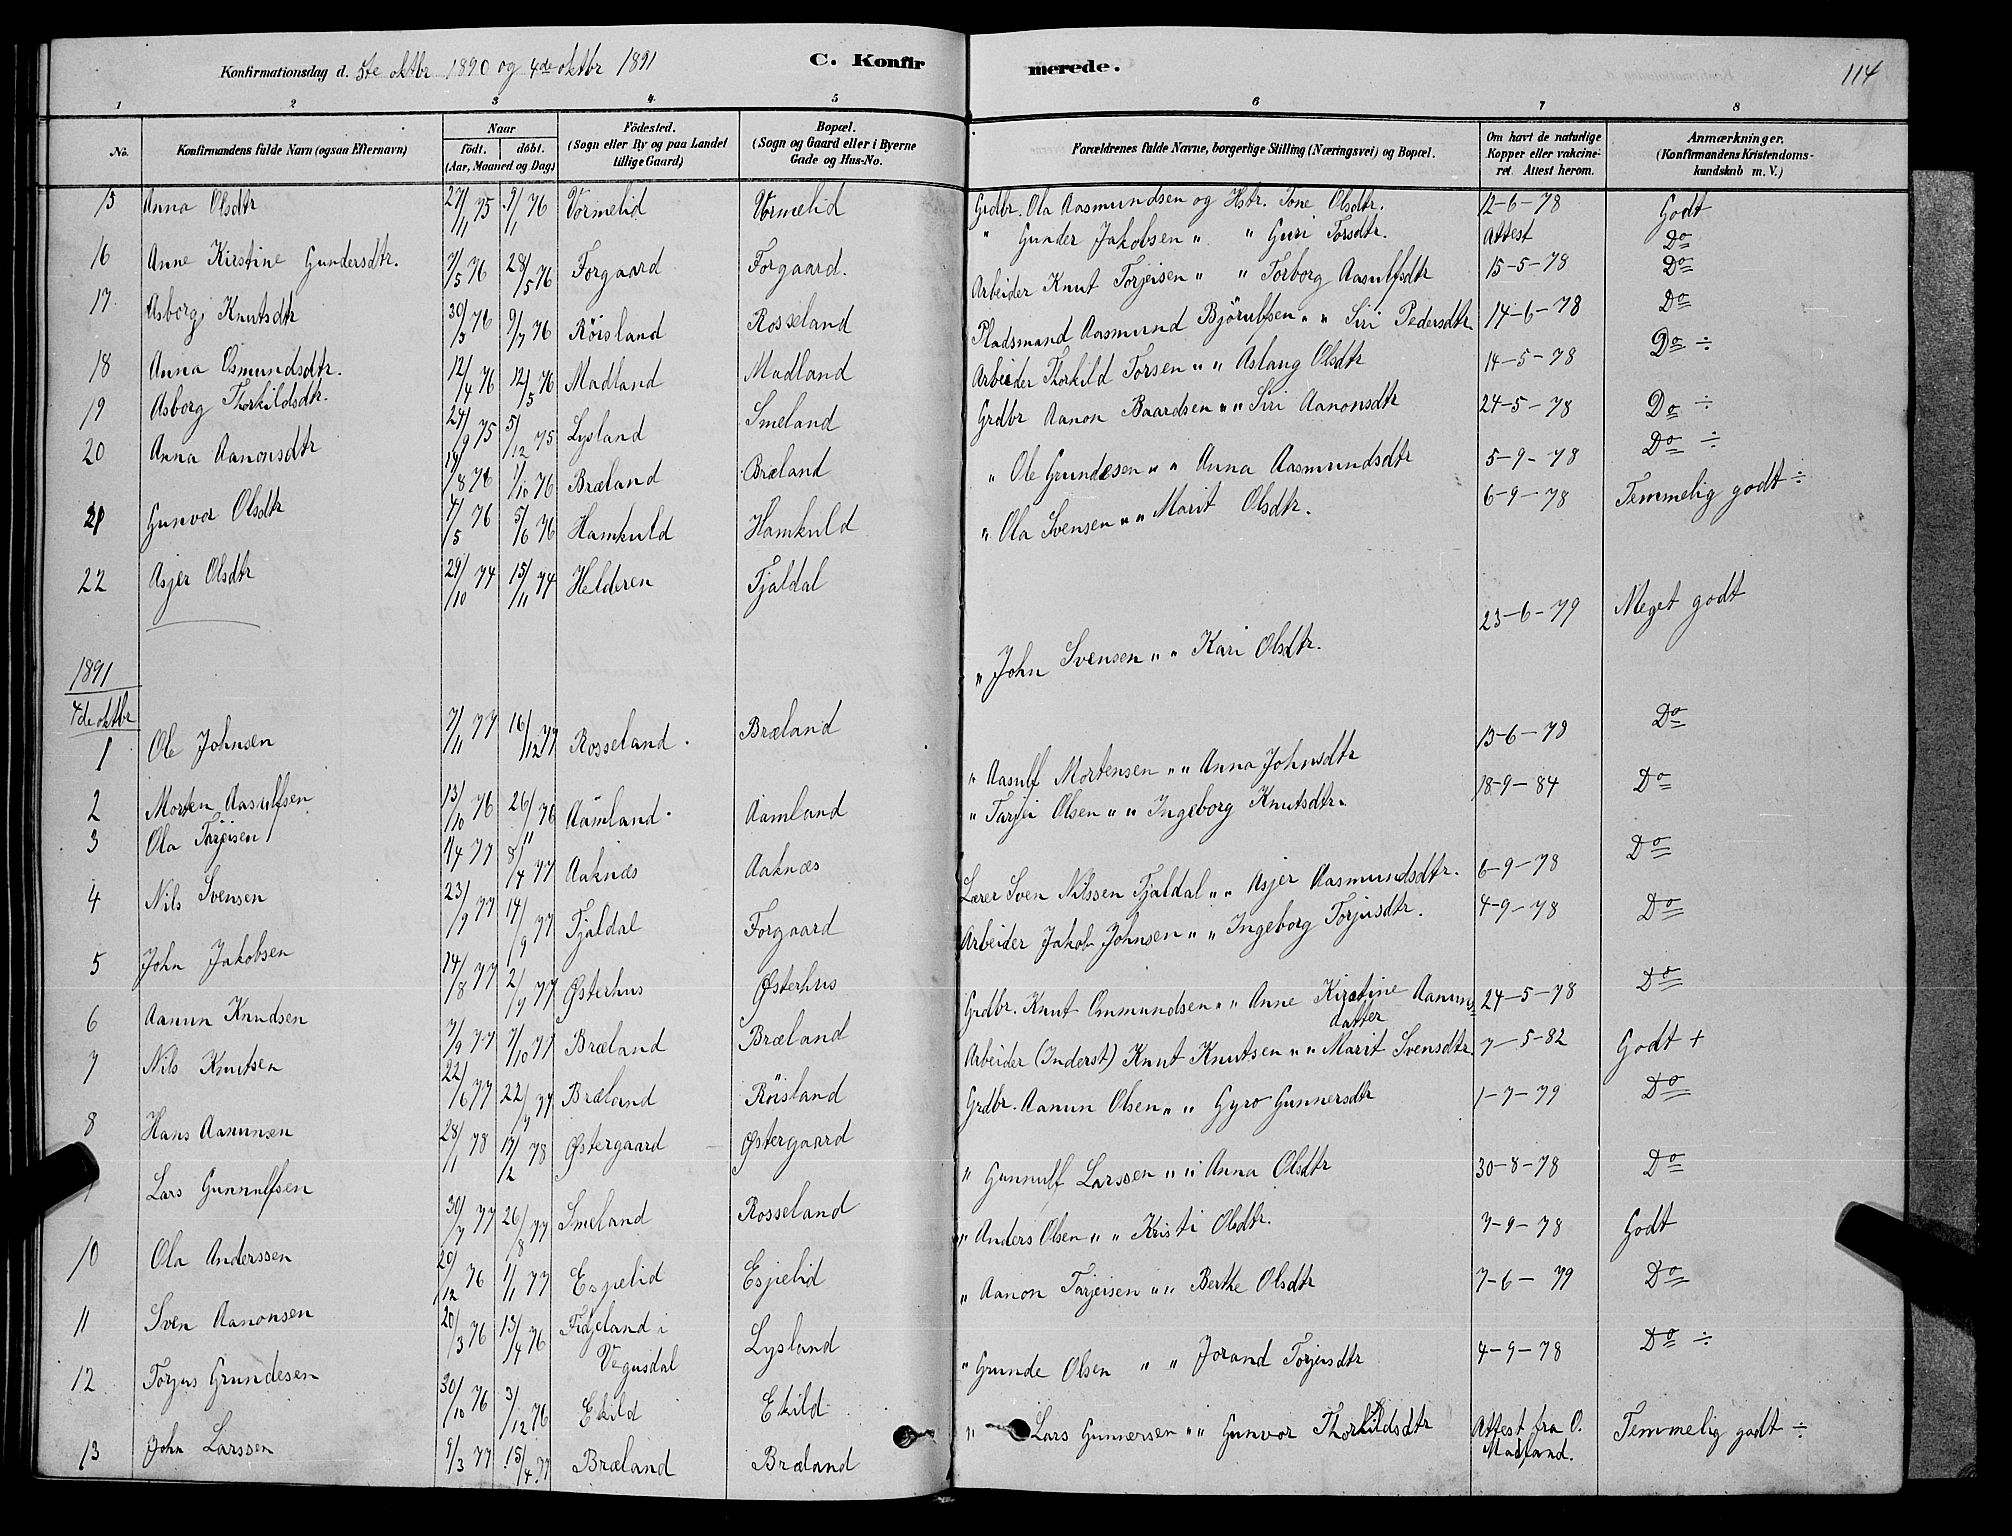 Konfirmationsdag d. 5te oktbr 1890 og 4de oktbr 1891 C. Konfirmerede. 114
1 2 3 4 5 6 7 8
No. Konfirmandens fulde Navn (ogsaa Efternavn) Naar født. døbt. (Aar, Maaned og Dag) Födested. (Sogn eller By og paa Landet tillige Gaard) Bopæl. (Sogn og Gaard eller i Byerne Gade og Hus-No. Forældrenes fulde Navne, borgerlige Stilling (Næringsvei) og Bopæl. Om havt de naturlige Kopper eller vakcineret. Attest herom. Anmærkninger. (Konfirmandens Kristendomskundskab m. V.)
15 Anna Olsdtr 27/11 75 9/1 76 Vormelid Vormelid Grdbr. Ola Aasmundsen og Hstr. Tone Olsdtr. 12-6-78 Godt
16 Anne Kirstine Gundersdtr. 7/5 76 28/5 76 Forgaard Forgaard. " Gunder Jakobsen " " Guri Torsdtr. Attest Do
17 Asborg Knutsdtr 30/5 76 9/7 76 Röisland Rosseland Arbeider Knut Torjeisen " " Torborg Aasulfsdtr 15-5-78 Do
18 Anna Osmundsdtr. 12/4 76 12/5 76 Madland Madland Pladsmand Aasmund Björulfsen " " Siri Pedersdtr 14-6-78 Do
19 Asborg Thorkildsdtr. 24/9 75 5/12 75 Lysland Smeland Arbeider Thorkild Torsen " " Aslaug Olsdtr 14-5-78 Do ÷
20 Anna Aanonsdtr 14/8 76 1/10 76 Bræland Bræland Grdbr Aanon Baardsen " " Siri Aanonsdtr 24-5-78 Do ÷
21 Gunvor Olsdtr 4/5 76 5/6 76 Hamkuld Hamkuld " Ole Grundesen " " Anna Aasmundsdtr 5-9-78 Do ÷
22 Asjer Olsdtr 29/10 74 15/11 74 Helderen Fjaldal " Ola Svensen " " Marit Olsdtr. 6-9-78 Temmelig godt ÷
1891
4de oktbr
1 Ole Johnsen 7/11 77 16/12 77 Rosseland. Bræland " John Svensen " " Kari Olsdtr. 23-6-79 Meget godt
2 Morten Aasulfsen 13/10 76 26/11 76 Aamland. Aamland " Aasulf Mortensen " " Anna Johnsdtr 13-6-78 Do
3 Ola Tarjeisen 1/4 77 8/4 77 Aaknæs Aaknæs " Tarjei Olsen " " Ingeborg Knutsdtr. 18-9-84 Do
4 Nils Svensen 23/7 77 14/9 77 Fjaldal Forgaard Lærer Sven Nilssen Fjaldal " " Asjer Aasmundsdtr. 6-9-78 Do
5 John Jakobsen 14/8 77 2/9 77 Østerhus Østerhus Arbeider Jakob Johnsen " " Ingeborg Torjusdtr. 4-9-78 Do
6 Aanun Knudsen 7/9 77 7/10 77 Bræland Bræland Grdbr. Knut Ommundsen " " Anne Kirstine Aanunsdatter 24-5-78 Do
7 Nils Knutsen 22/6 77 22/7 77 Bræland Röisland Arbeider (Inderst) Knut Knutsen " " Marit Svensdtr 7-5-82 Godt +
8 Hans Aanunsen 28/1 78 17/2 78 Østergaard Østergaard Grdbr. Aanun Olsen " " Gyro Gunnersdtr 1-7-79 Do
Lars Gunnulfsen 30/7 77 26/8 77 Smeland Rosseland " Gunnulf Larssen " " Anna Olsdtr 30-8-78 Do
10 Ola Anderssen 29/12 76 1/1 77 Espelid Espelid " Anders Olsen " " Kristi Olsdtr. 3-9-78 Godt
11 Sven Aanonsen 20/3 76 13/4 76 Fidjeland i Vegusdal Lysland " Aanon Tarjeisen " " Berthe Olsdtr 7-6-79 Do
12 Torjus Grundesen 30/10 76 3/12 76 Ekild Ekild " Grunde Olsen " " Jorand Torjusdtr 4-9-78 Do ÷
13 John Larssen 9/3 77 15/4 77 Bræland Bræland " Lars Gunnersen " " Gunvor Thorkildsdtr Attest fra O. Madland. Temmelig godt ÷